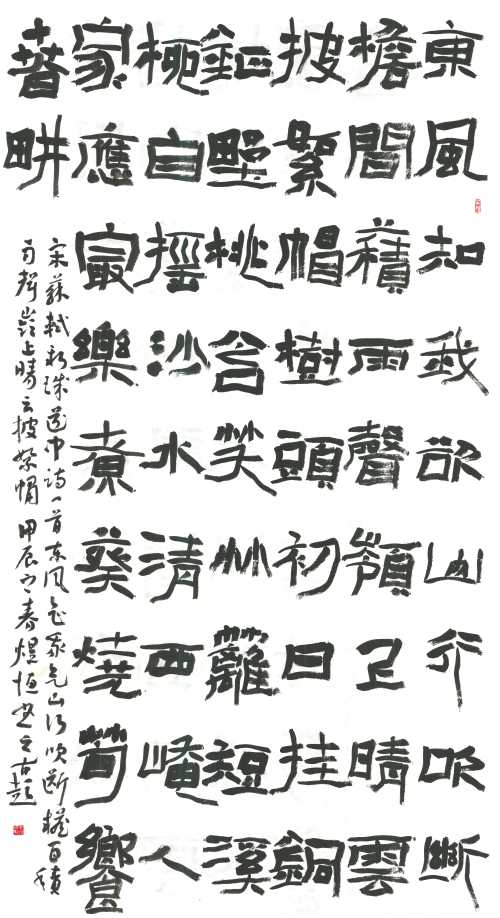 東風知我欲山行吹斷
檐間積雨聲嶺上晴雲
披絮帽樹頭初日挂銅
鉦墅桃含笑竹籬短溪
柳自搖沙水清西崦人
家應最樂煮葵燒筍饗
春耕
宋蘇軾新城道中詩一首東風知我欲山行吹斷檐間積
雨聲嶺上晴雲披絮帽 甲辰之春煜恒書之